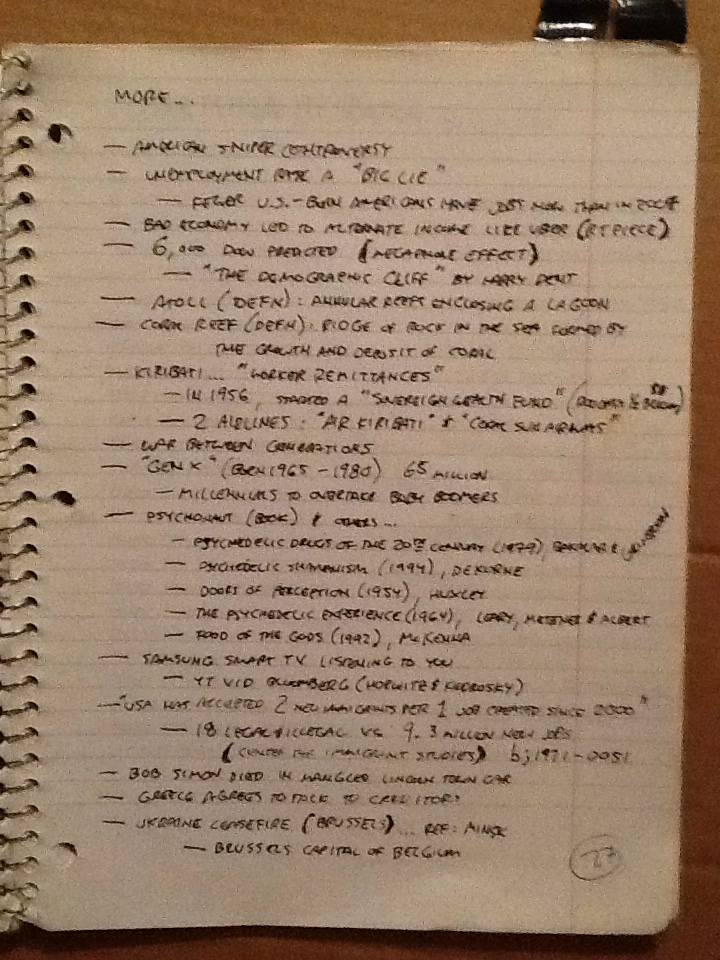 MORE...
— AMERICAN SNIPER CONTROVERSY
— UNEMPLOYMENT RATE A "BIG LIE"
— FEWER U.S.-BORN AMERICANS HAVE JOBS NOW THAN IN 2007
— BAD ECONOMY LED TO ALTERNATE INCOME LIKE UBER (RT PIECE)
— 6,000 DOW PREDICTED (MEGAPHONE EFFECT)
— "THE DEMOGRAPHIC CLIFF" BY HARRY DENT
— ATOLL (DEFN): ANNULAR REEFS ENCLOSING A LAGOON
— CORAL REEF (DEFN): RIDGE OF ROCK IN THE SEA FORMED BY
THE GROWTH AND DEPOSIT OF CORAL
— KIRIBATI... "WORKER REMITTANCES"
— IN 1956, STARTED A "SOVEREIGN WEALTH FUND"
— 2 AIRLINES: "AIR KIRIBATI" & "CORAL SUN AIRWAYS"
— WAR BETWEEN GENERATIONS
— "GEN X" (BORN 1965-1980) 65 MILLION
— MILLENNIALS TO OVERTAKE BABY BOOMERS
— PSYCHONAUT (BOOK) & OTHERS...
— PSYCHEDELIC DRUGS OF THE 20TH CENTURY (1979),
— PSYCHEDELIC SHAMANISM (1994), DEKORNE
— DOORS OF PERCEPTION (1954), HUXLEY
— THE PSYCHEDELIC EXPERIENCE (1964), LEARY, METZNER & ALBERT
— FOOD OF THE GODS (1992), McKENNA
— SAMSUNG SMART TV LISTENING TO YOU
— YT VID BLOOMBERG (HOROWITZ & KEDROSKY)
— "USA HAS ACCEPTED 2 NEW IMMIGRANTS PER 1 JOB CREATED SINCE 2000"
— 18 LEGAL & ILLEGAL VS 9.3 MILLION NEW JOBS
(CENTER FOR IMMIGRANT STUDIES) bj1971-0051
— BOB SIMON DIED IN MANGLED LINCOLN TOWN CAR
— GREECE AGREES TO TALK TO CREDITORS
— UKRAINE CEASEFIRE (BRUSSELS)... REF: MINSK
— BRUSSELS CAPITAL OF BELGIUM
27